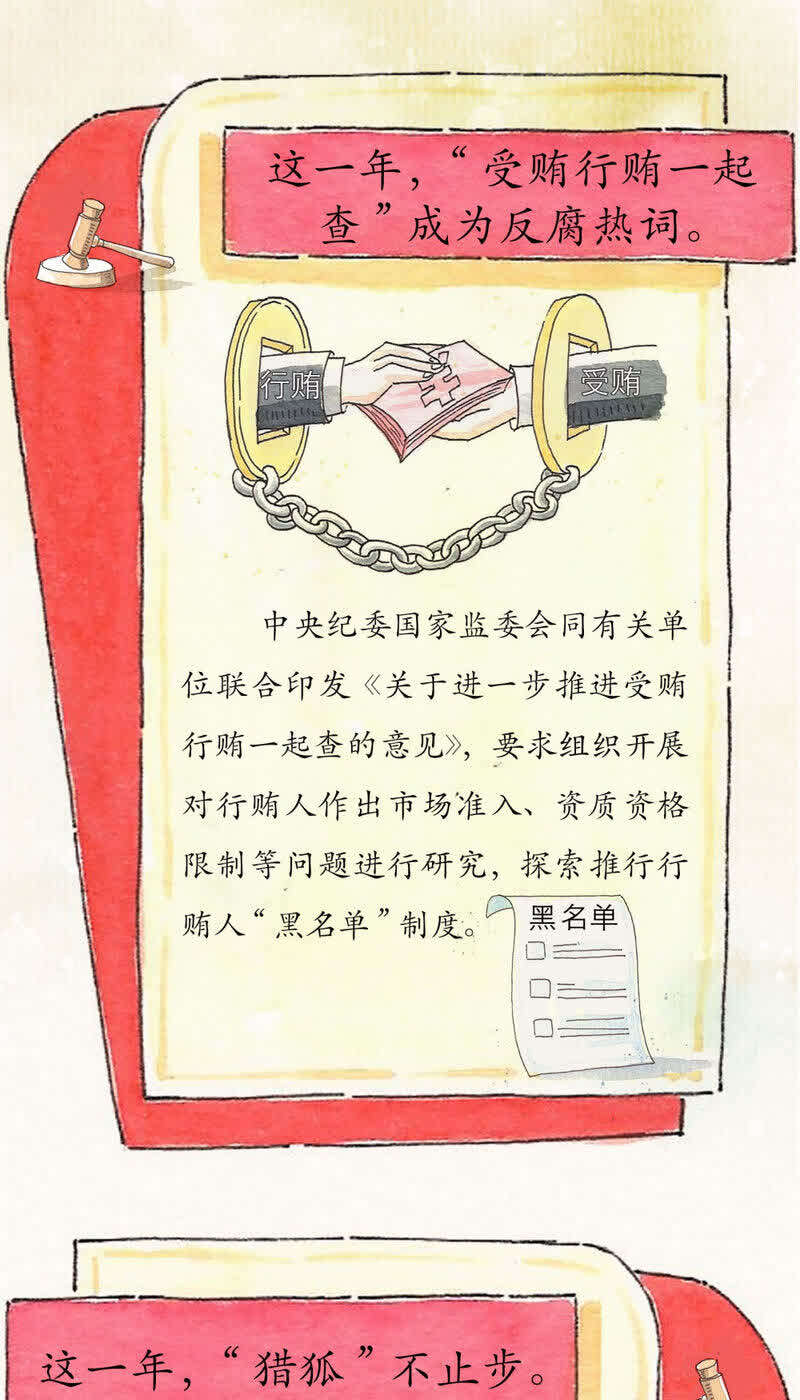 这一年，“受贿行贿一起
查”成为反腐热词。
行贿
受贿
中央纪委国家监委会同有关单
位联合印发《关于进一步推进受贿
行贿一起查的意见》，要求组织开展
对行贿人作出市场准入、资质资格
限制等问题进行研究，探索推行行
贿人“黑名单”制度。
黑名单
这一年，“猎狐”不止步。